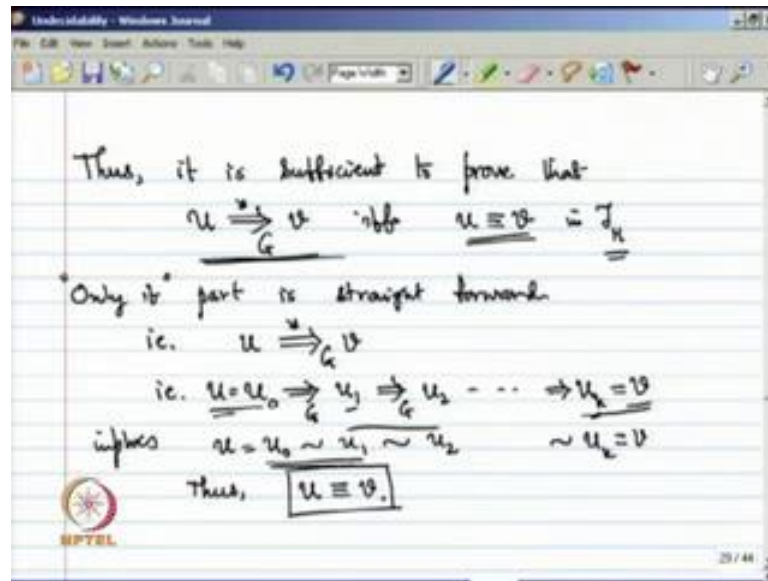 Undecidability - Windows Journal
File Edit View Insert Actions Tools Help
Page Width
Thus, it is sufficient to prove that
u ⇒*G v iff u ≡ v in T
"Only if" part is straight forward
ie. u ⇒*G v
ie. u = u₀ ⇒G u₁ ⇒G u₂ - - ... ⇒ uₖ = v
implies u = u₀ ~ u₁ ~ u₂ ~ uₖ = v
Thus, u ≡ v.
NPTEL
29/44